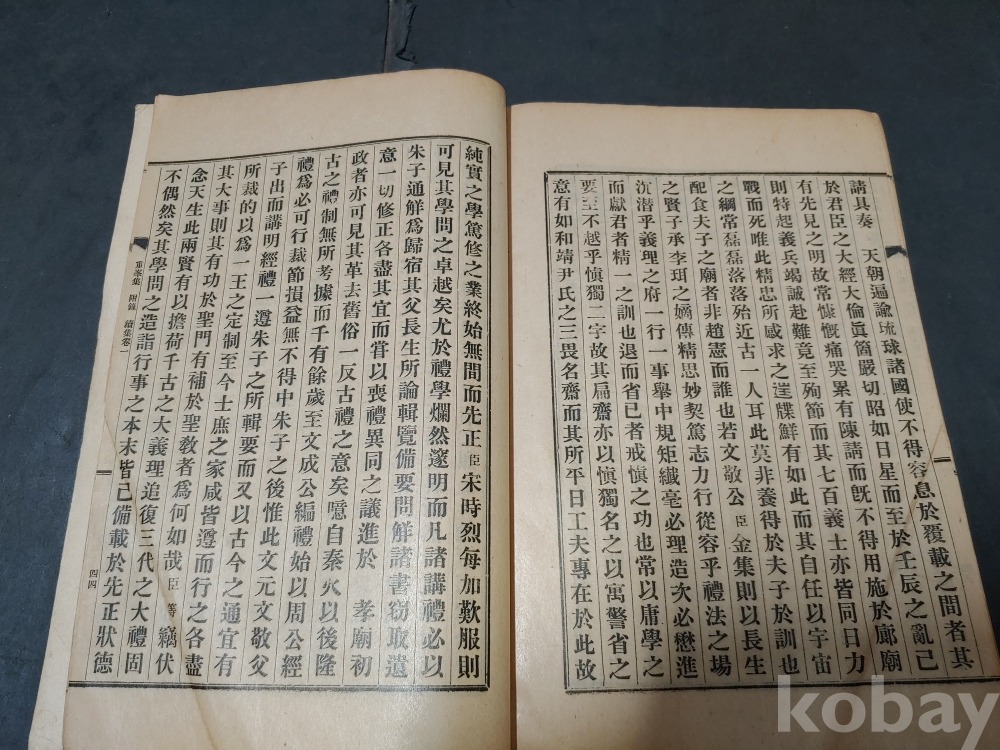 請具奏　天朝遍諭琉球諸國使不得容息於覆載之間者其
於君臣之大經大倫眞箇嚴切昭如日星而至於壬辰之亂已
有先見之明故常慷慨痛哭累有陳請而旣不得用施於廊廟
則特起義兵竭誠赴難竟至殉節而其七百義士亦皆同日力
戰而死唯此精忠所感求之䢖牒鮮有如此而其自任以宇宙
之綱常磊磊落落殆近古一人耳此莫非養得於夫子於訓也
配食夫子之廟者非趙憲而誰也若文敬公臣金集則以長生
之賢子承李珥之嫡傳精思妙契篤志力行從容乎禮法之場
沉潜乎義理之府一行一事舉中規矩纎毫必理造次必懋進
而獻君者精一之訓也退而省已者戒愼之功也常以庸學之
要至不越乎愼獨二字故其扁齋亦以愼獨名之以寓警省之
意有如和靖尹氏之三畏名齋而其所平日工夫專在於此故
純實之學篤修之業終始無間而先正臣宋時烈每加歎服則
可見其學問之卓越矣尤於禮學爛然邃明而凡諸講禮必以
朱子通解爲歸宿其父長生所論輯覽備要問解諸書窃取遺
意一切修正各盡其宜而嘗以喪禮異同之議進於　孝廟初
政者亦可見其革去舊俗一反古禮之意矣噫自秦火以後隆
古之禮制無所考據而千有餘歲至文成公編禮始以周公經
禮爲必可行裁節損益無不得中朱子之後惟此文元文敬父
子出而講明經禮一遵朱子之所輯要而又以古今之通宜有
所裁的以爲一王之定制至今士庶之家咸皆遵而行之各盡
其大事則其有功於聖門有補於聖教者爲何如哉臣等竊伏
念天生此兩賢有以擔荷千古之大義理追復三代之大禮固
不偶然矣其學問之造詣行事之本末皆已備載於先正狀德
重峯集　附錄　續集卷一
四四
kobay